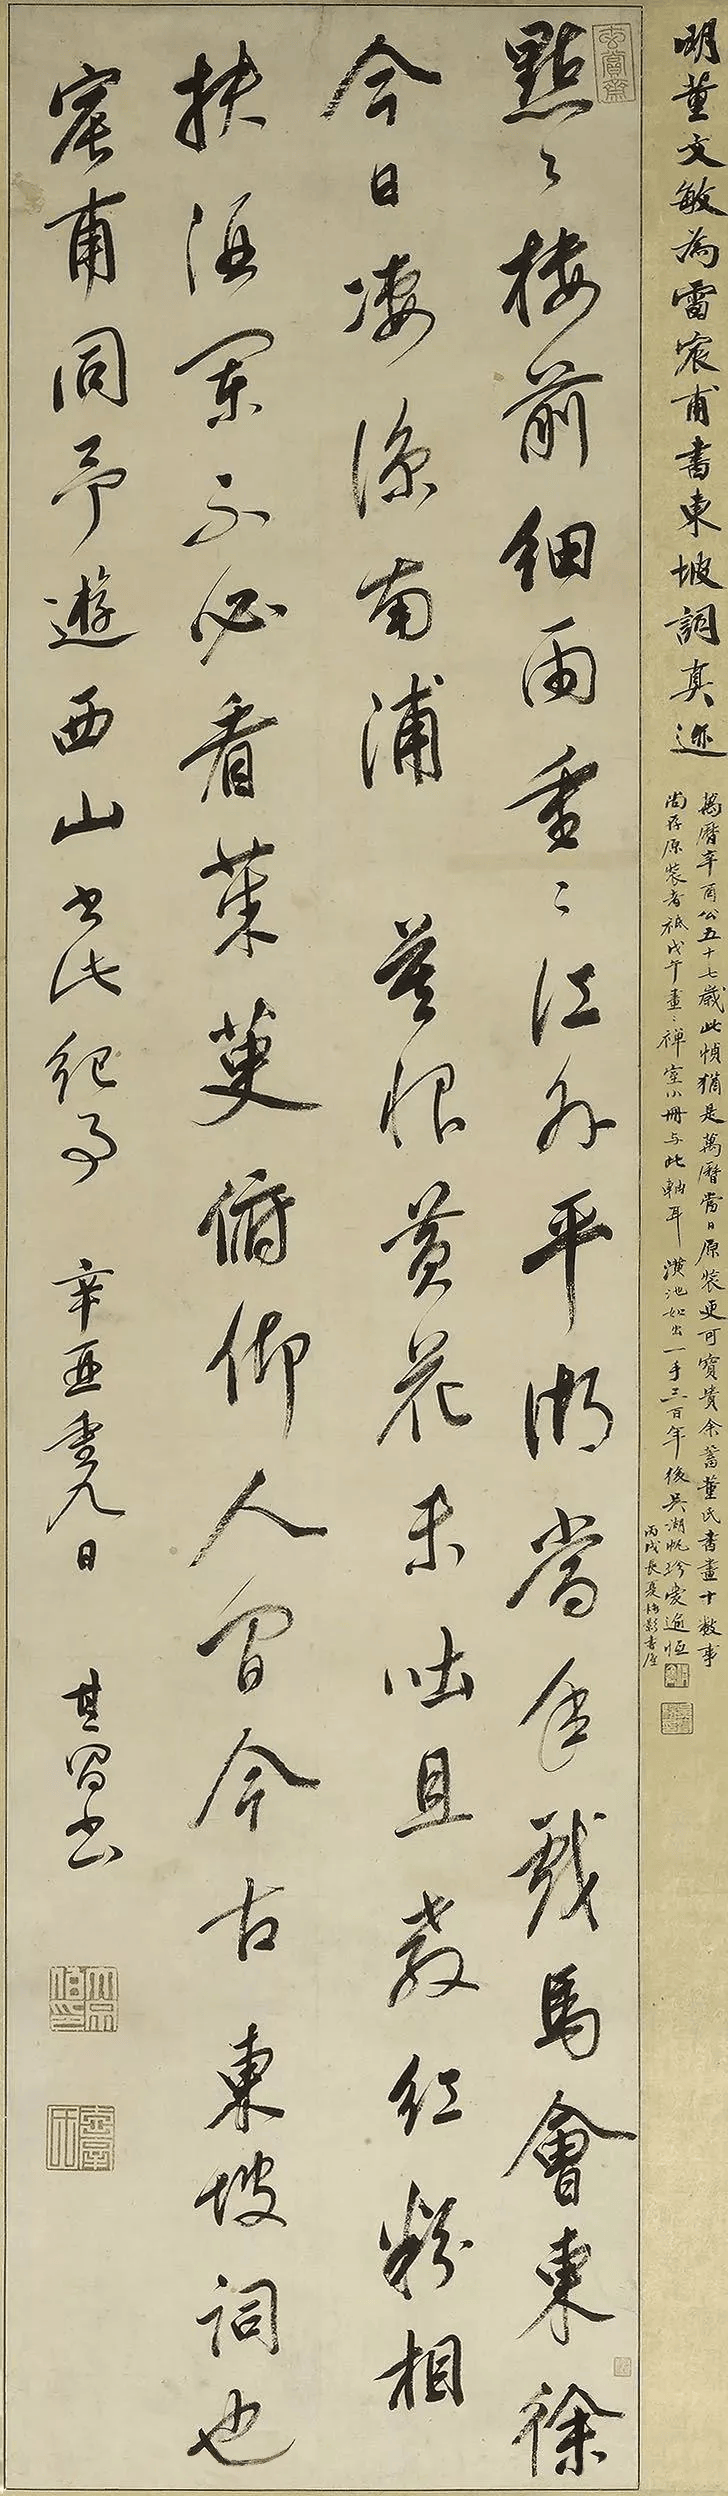 明董文敏為雷宸甫書東坡詞真迹
萬曆辛酉公五十七歲此幀猶是萬曆當日原裝更可寶貴余蓄董氏書畫十數事
尚存原裝者祗戊午畫禪室小冊与此軸耳 潢池如出一手三百年後吳湖帆珍愛逾恆
丙戌長夏梅影書屋
玄賞齋
點〻樓前細雨重〻江外平湖當年戲馬會東徐
今日凄涼南浦 莫恨黃花未吐且教紅粉相
扶酒闌不必看茱萸俯仰人間今古東坡詞也
宸甫同予遊西山書此紀事 辛亞重九日 其昌書